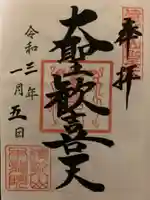 奉拝
大聖歓喜天
令和三年
一月五日